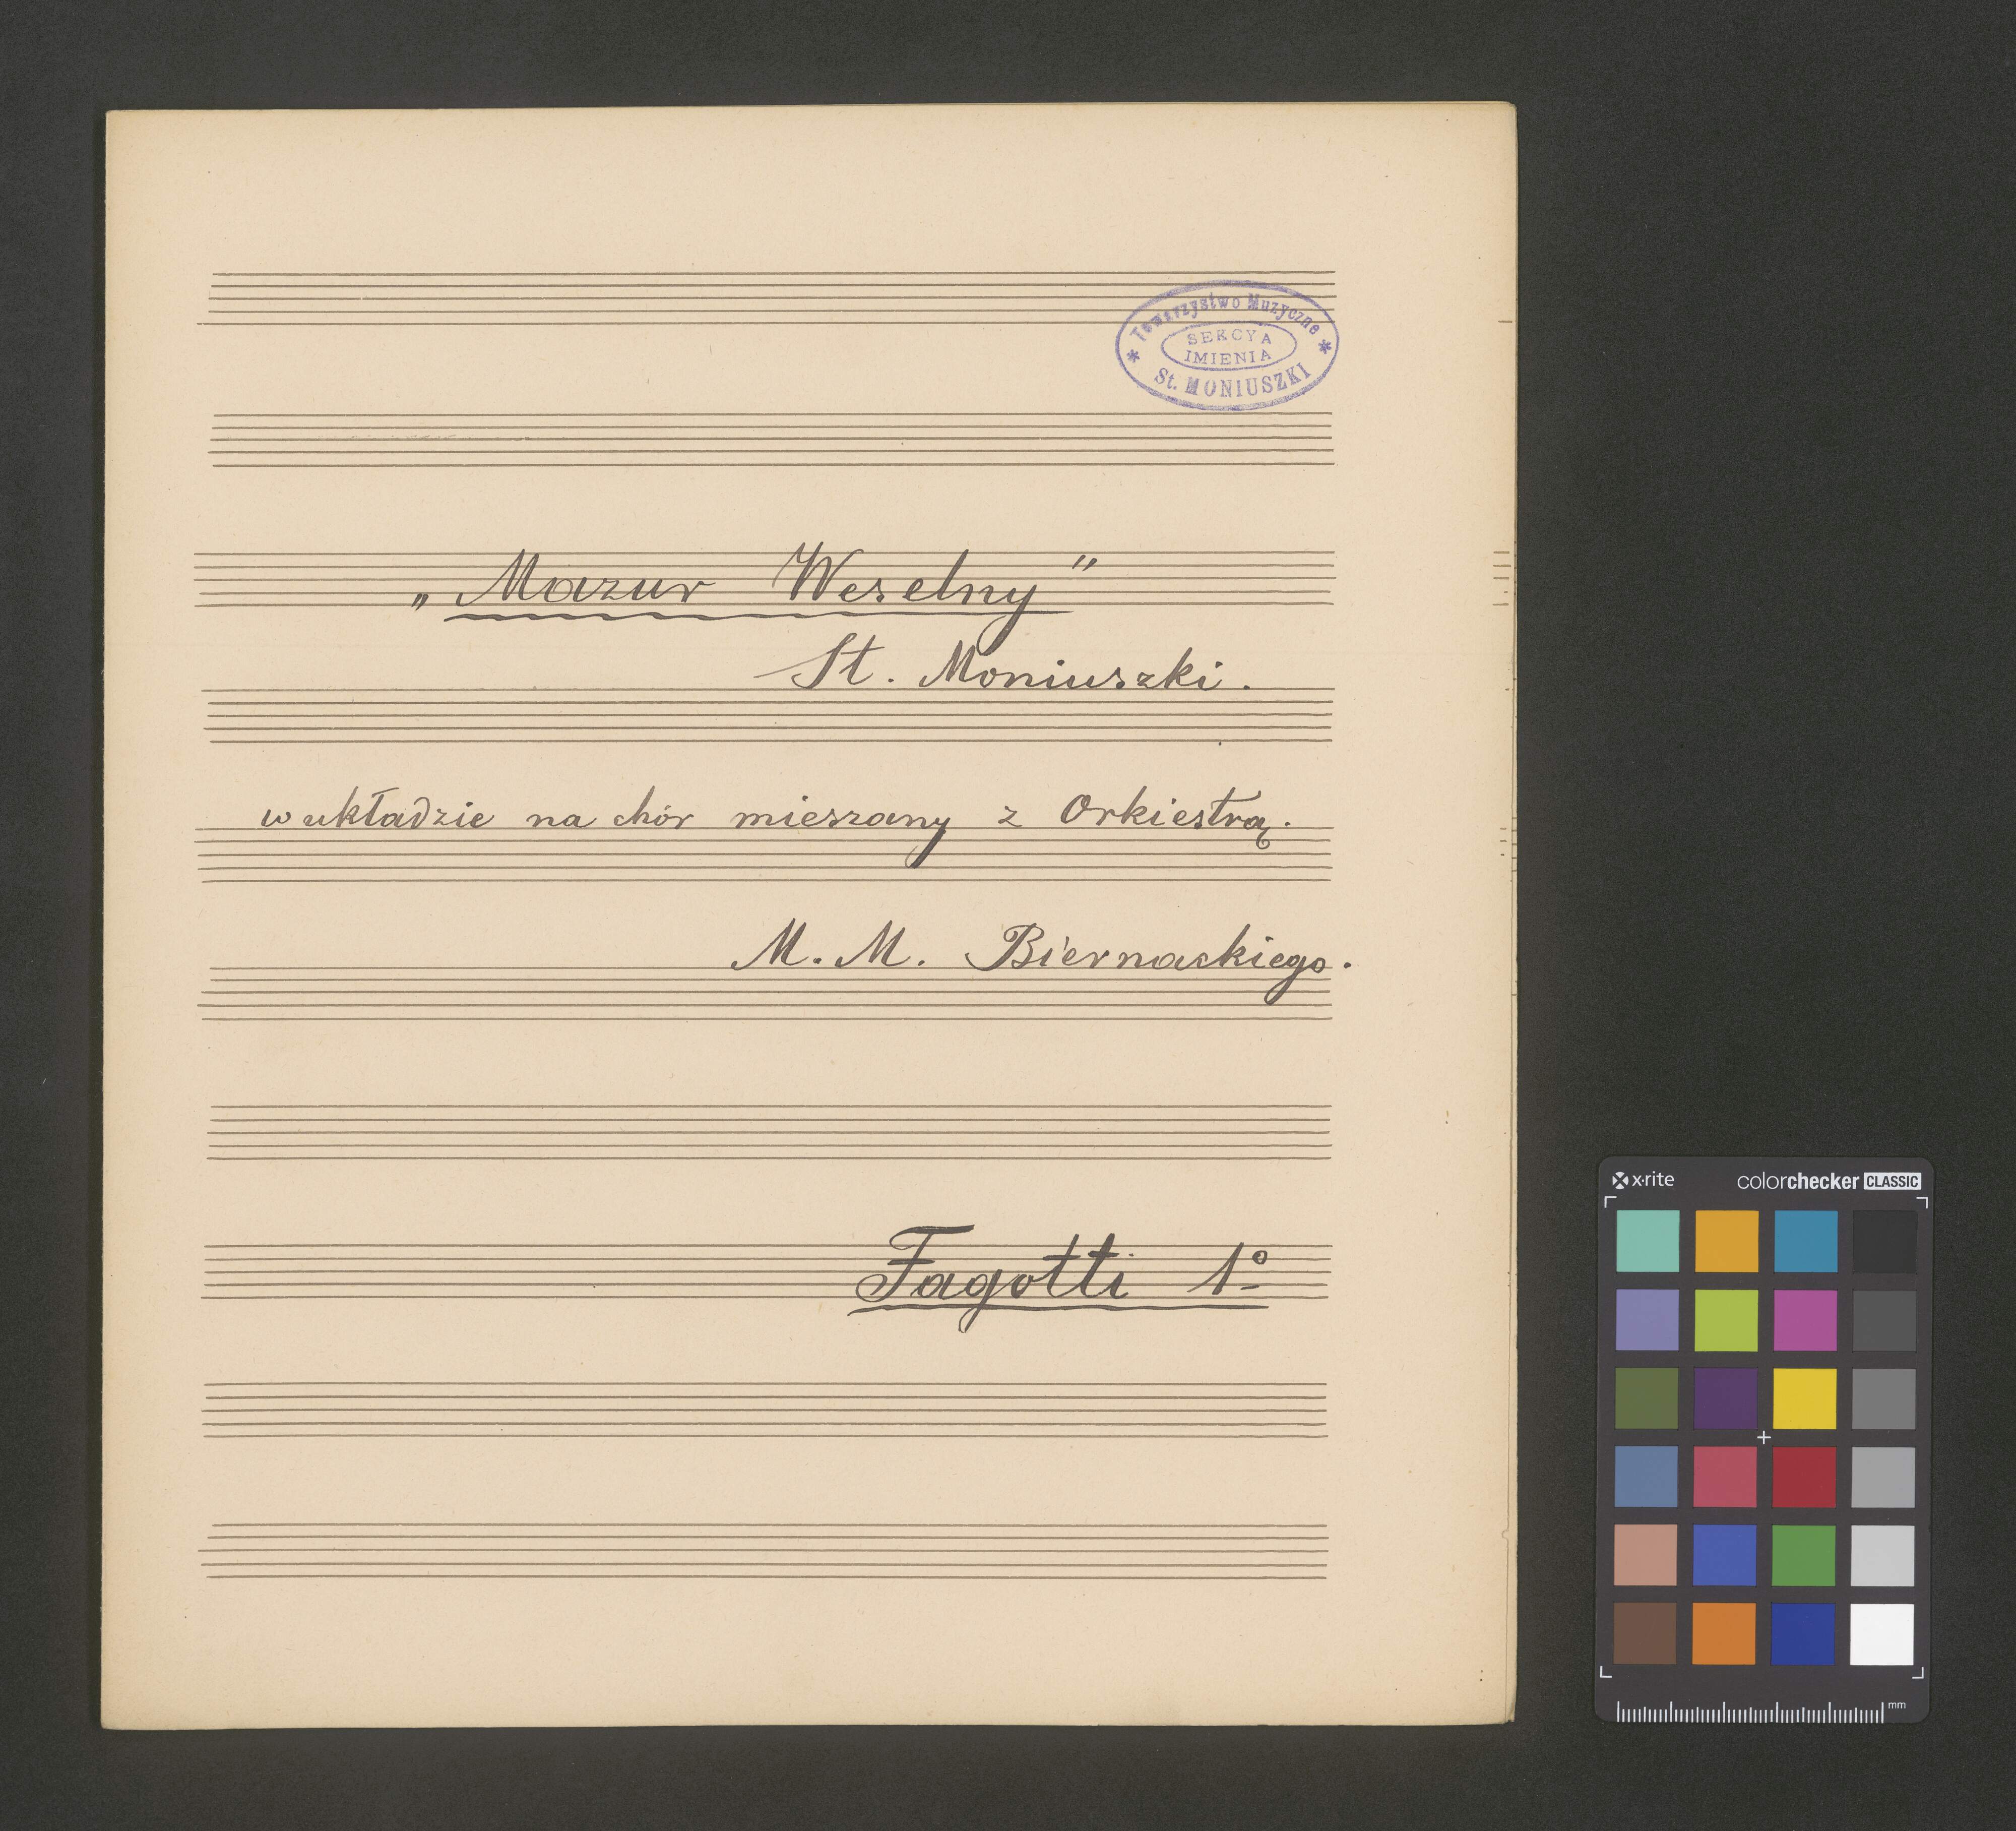 Towarzystwo Muzyczne
SEKCYA
IMIENIA
St. MONIUSZKI
„Mazur Weselny"
St. Moniuszki.
w układzie na chór mieszany z Orkiestrą.
M. M. Biernackiego.
Fagotti 1º
x·rite colorchecker CLASSIC
mm